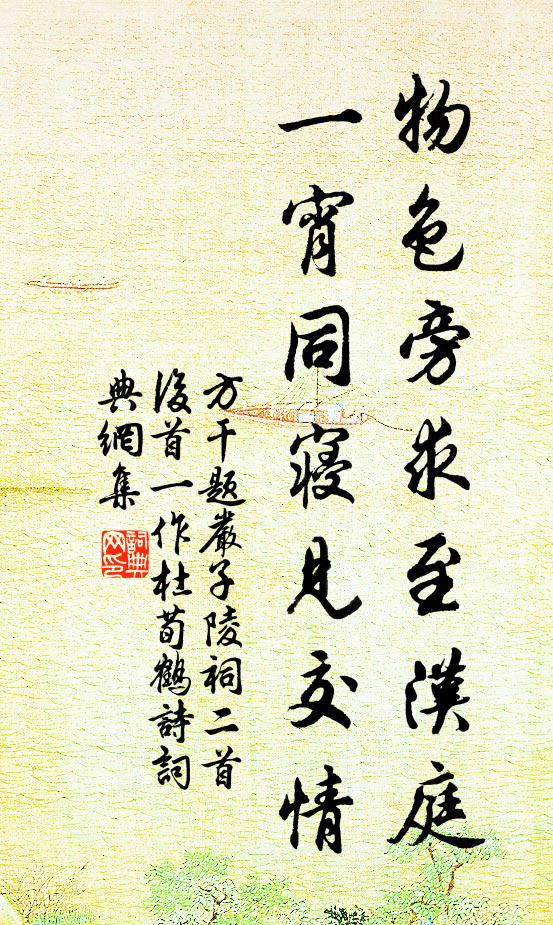 物色旁求至漢庭
一宵同寢見交情
方干題嚴子陵祠二首
後首一作杜荀鶴詩詞
典網集
詞典
网印